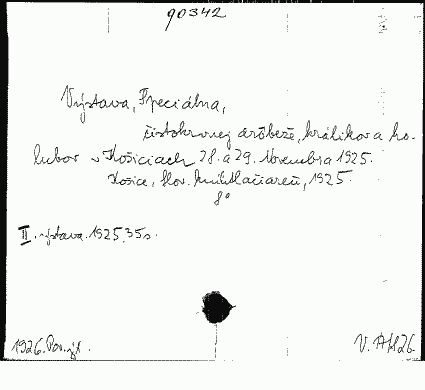 90342
Výstava, Špeciálna,
čistokrvnej drôbeže, králikov a ho-
lubov v Košiciach 28. a 29. Novembra 1925.
Košice, Slov. kníhtlačiareň, 1925.
8°
II. výstava. 1925. 35 s.
1926.
V.